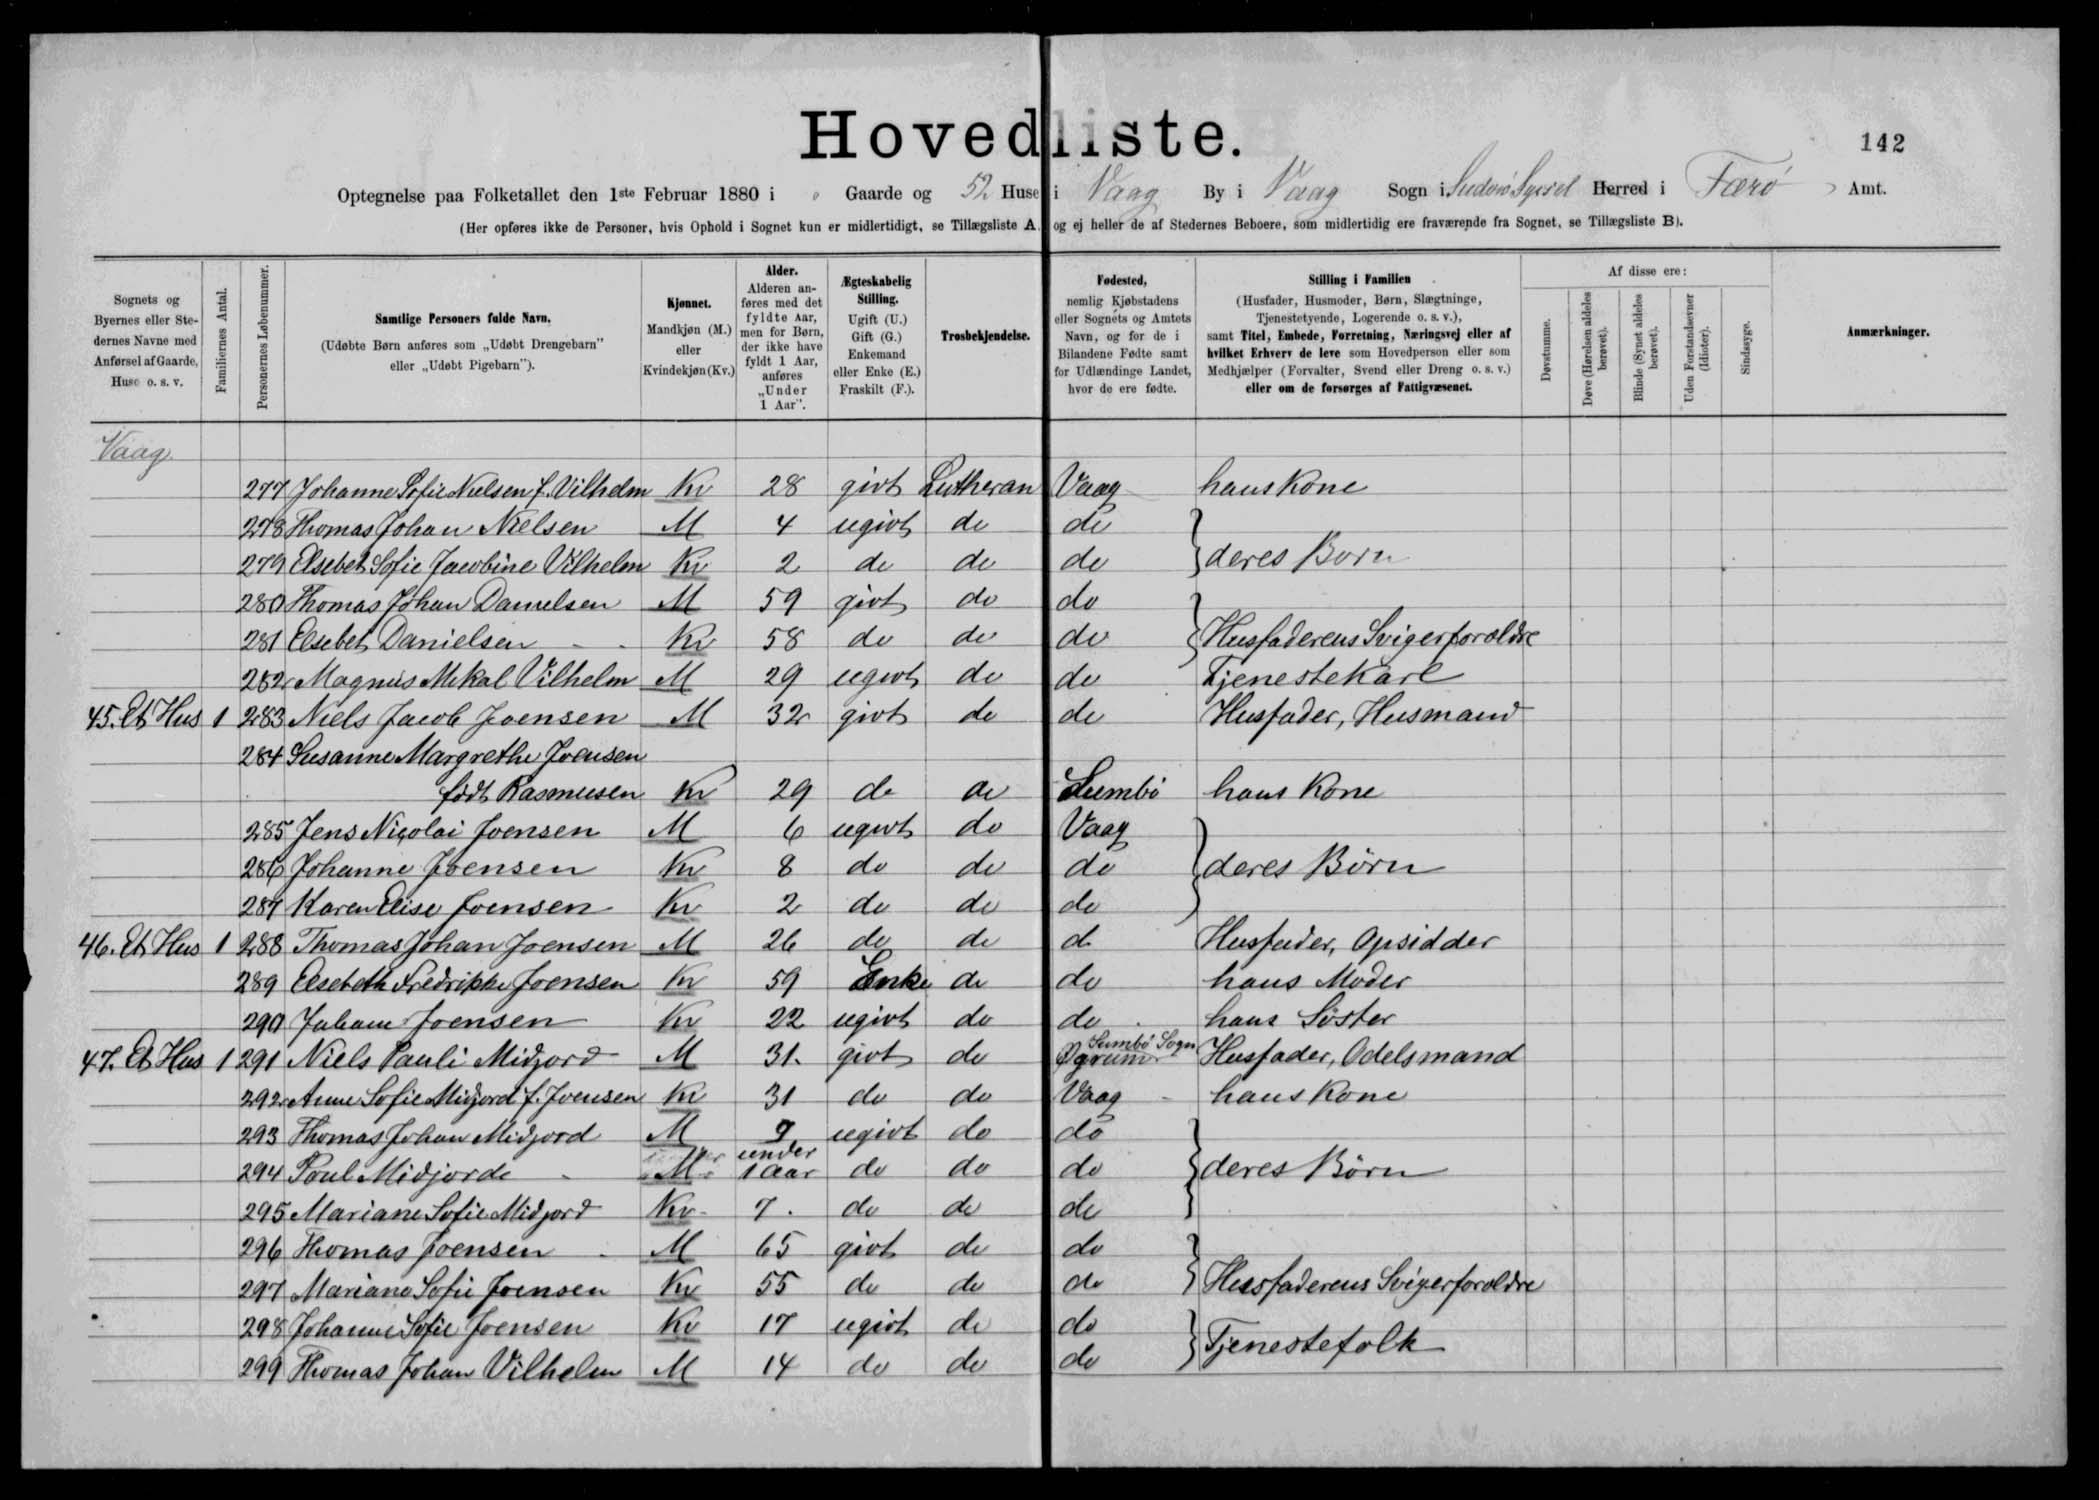 Hovedliste.
142
Optegnelse paa Folketallet den 1ste Februar 1880 i " Gaarde og 52 Huse i Vaag By i Vaag Sogn i Suderø Syssel Herred i Færø Amt.
(Her opføres ikke de Personer, hvis Ophold i Sognet kun er midlertidigt, se Tillægsliste A, og ej heller de af Stedernes Beboere, som midlertidig ere fraværende fra Sognet, se Tillægsliste B).
Sognets og Byernes eller Stedernes Navne med Anførsel af Gaarde, Huse o. s. v.
Familiernes Antal.
Personernes Løbenummer.
Samtlige Personers fulde Navn.
(Udøbte Børn anføres som „Udøbt Drengebarn" eller „Udøbt Pigebarn").
Kjønnet.
Mandkjøn (M.) eller Kvindekjøn (Kv.)
Alder.
Alderen anføres med det fyldte Aar, men for Børn, der ikke have fyldt 1 Aar, anføres „Under 1 Aar".
Ægteskabelig Stilling.
Ugift (U.) Gift (G.) Enkemand eller Enke (E.) Fraskilt (F.).
Trosbekjendelse.
Fødested,
nemlig Kjøbstadens eller Sognets og Amtets Navn, og for de i Bilandene Fødte samt for Udlændinge Landet, hvor de ere fødte.
Stilling i Familien
(Husfader, Husmoder, Børn, Slægtninge, Tjenestetyende, Logerende o. s. v.), samt Titel, Embede, Forretning, Næringsvej eller af hvilket Erhverv de leve som Hovedperson eller som Medhjælper (Forvalter, Svend eller Dreng o. s. v.) eller om de forsørges af Fattigvæsenet.
Af disse ere:
Døvstumme.
Døve (Hørelsen aldeles berøvet).
Blinde (Synet aldeles berøvet).
Uden Forstandsevner (Idioter).
Sindssyge.
Anmærkninger.
Vaag
277 Johanne Sofie Nielsen f. Vilhelm Kv 28 givt Lutheran Vaag hans Kone
278 Thomas Johan Nielsen M 4 ugivt do do
279 Elsebet Sofie Jacobine Vilhelm Kv 2 do do do } deres Børn
280 Thomas Johan Danielsen M 59 givt do do
281 Elsebet Danielsen Kv 58 do do do } Husfaderens Svigerforældre
282 Magnus Mikal Vilhelm M 29 ugivt do do Tjenestekarl
45. Et Hus 1 283 Niels Jacob Joensen M 32 givt do do Husfader, Husmand
284 Susanne Margrethe Joensen
født Rasmusen Kv 29 do do Sumbø hans Kone
285 Jens Nicolai Joensen M 6 ugivt do Vaag
286 Johanne Joensen Kv 8 do do do } deres Børn
287 Karen Elise Joensen Kv 2 do do do
46. Et Hus 1 288 Thomas Johan Joensen M 26 do do d Husfader, Opsidder
289 Elsebeth Fredrikke Joensen Kv 59 Enke do do hans Moder
290 Johanne Joensen Kv 22 ugivt do do hans Søster
Sumbø Sogn
47. Et Hus 1 291 Niels Pauli Midjord M 31. givt do Husfader, Odelsmand
292 Anne Sofie Midjord f. Joensen Kv 31 do do Vaag hans Kone
293 Thomas Johan Midjord M 9 ugivt do do
294 Poul Midjorde M under 1 aar do do do } deres Børn
295 Mariane Sofie Midjord Kv 7. do do do
296 Thomas Joensen M 65 givt do do
297 Mariane Sofie Joensen Kv 55 do do do } Husfaderens Svigerforældre
298 Johanne Sofie Joensen Kv 17 ugivt do do
299 Thomas Johan Vilhelm M 14 do do do } Tjenestefolk